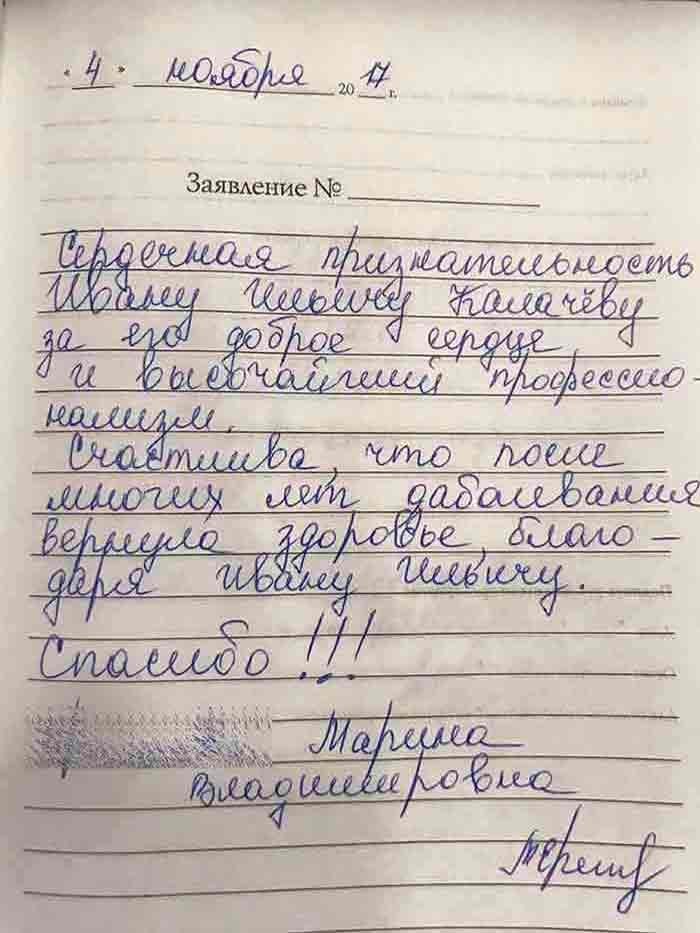 « 4 » ноября 20 17 г.
Заявление №
Сердечная признательность
Ивану Ильичу Калачёву
за его доброе сердце
и высочайший профессио-
нализм.
Счастлива, что после
многих лет заболевания
вернула здоровье, благо-
даря Ивану Ильичу.
Спасибо!!!
Марина
Владимировна